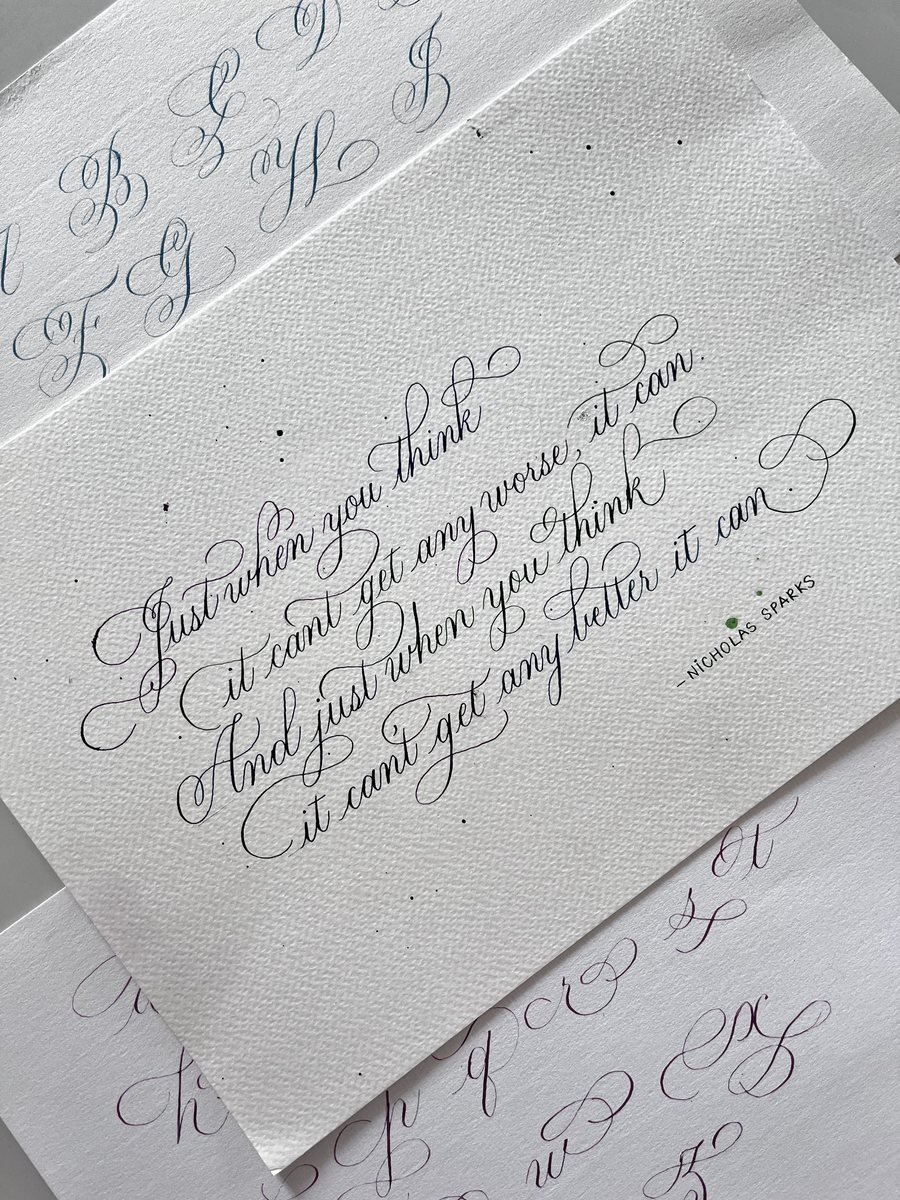 B E D
F G H J
Just when you think
it cant get any worse, it can.
And just when you think
it can't get any better it can.
—NICHOLAS SPARKS
s t
p q r
w x
z